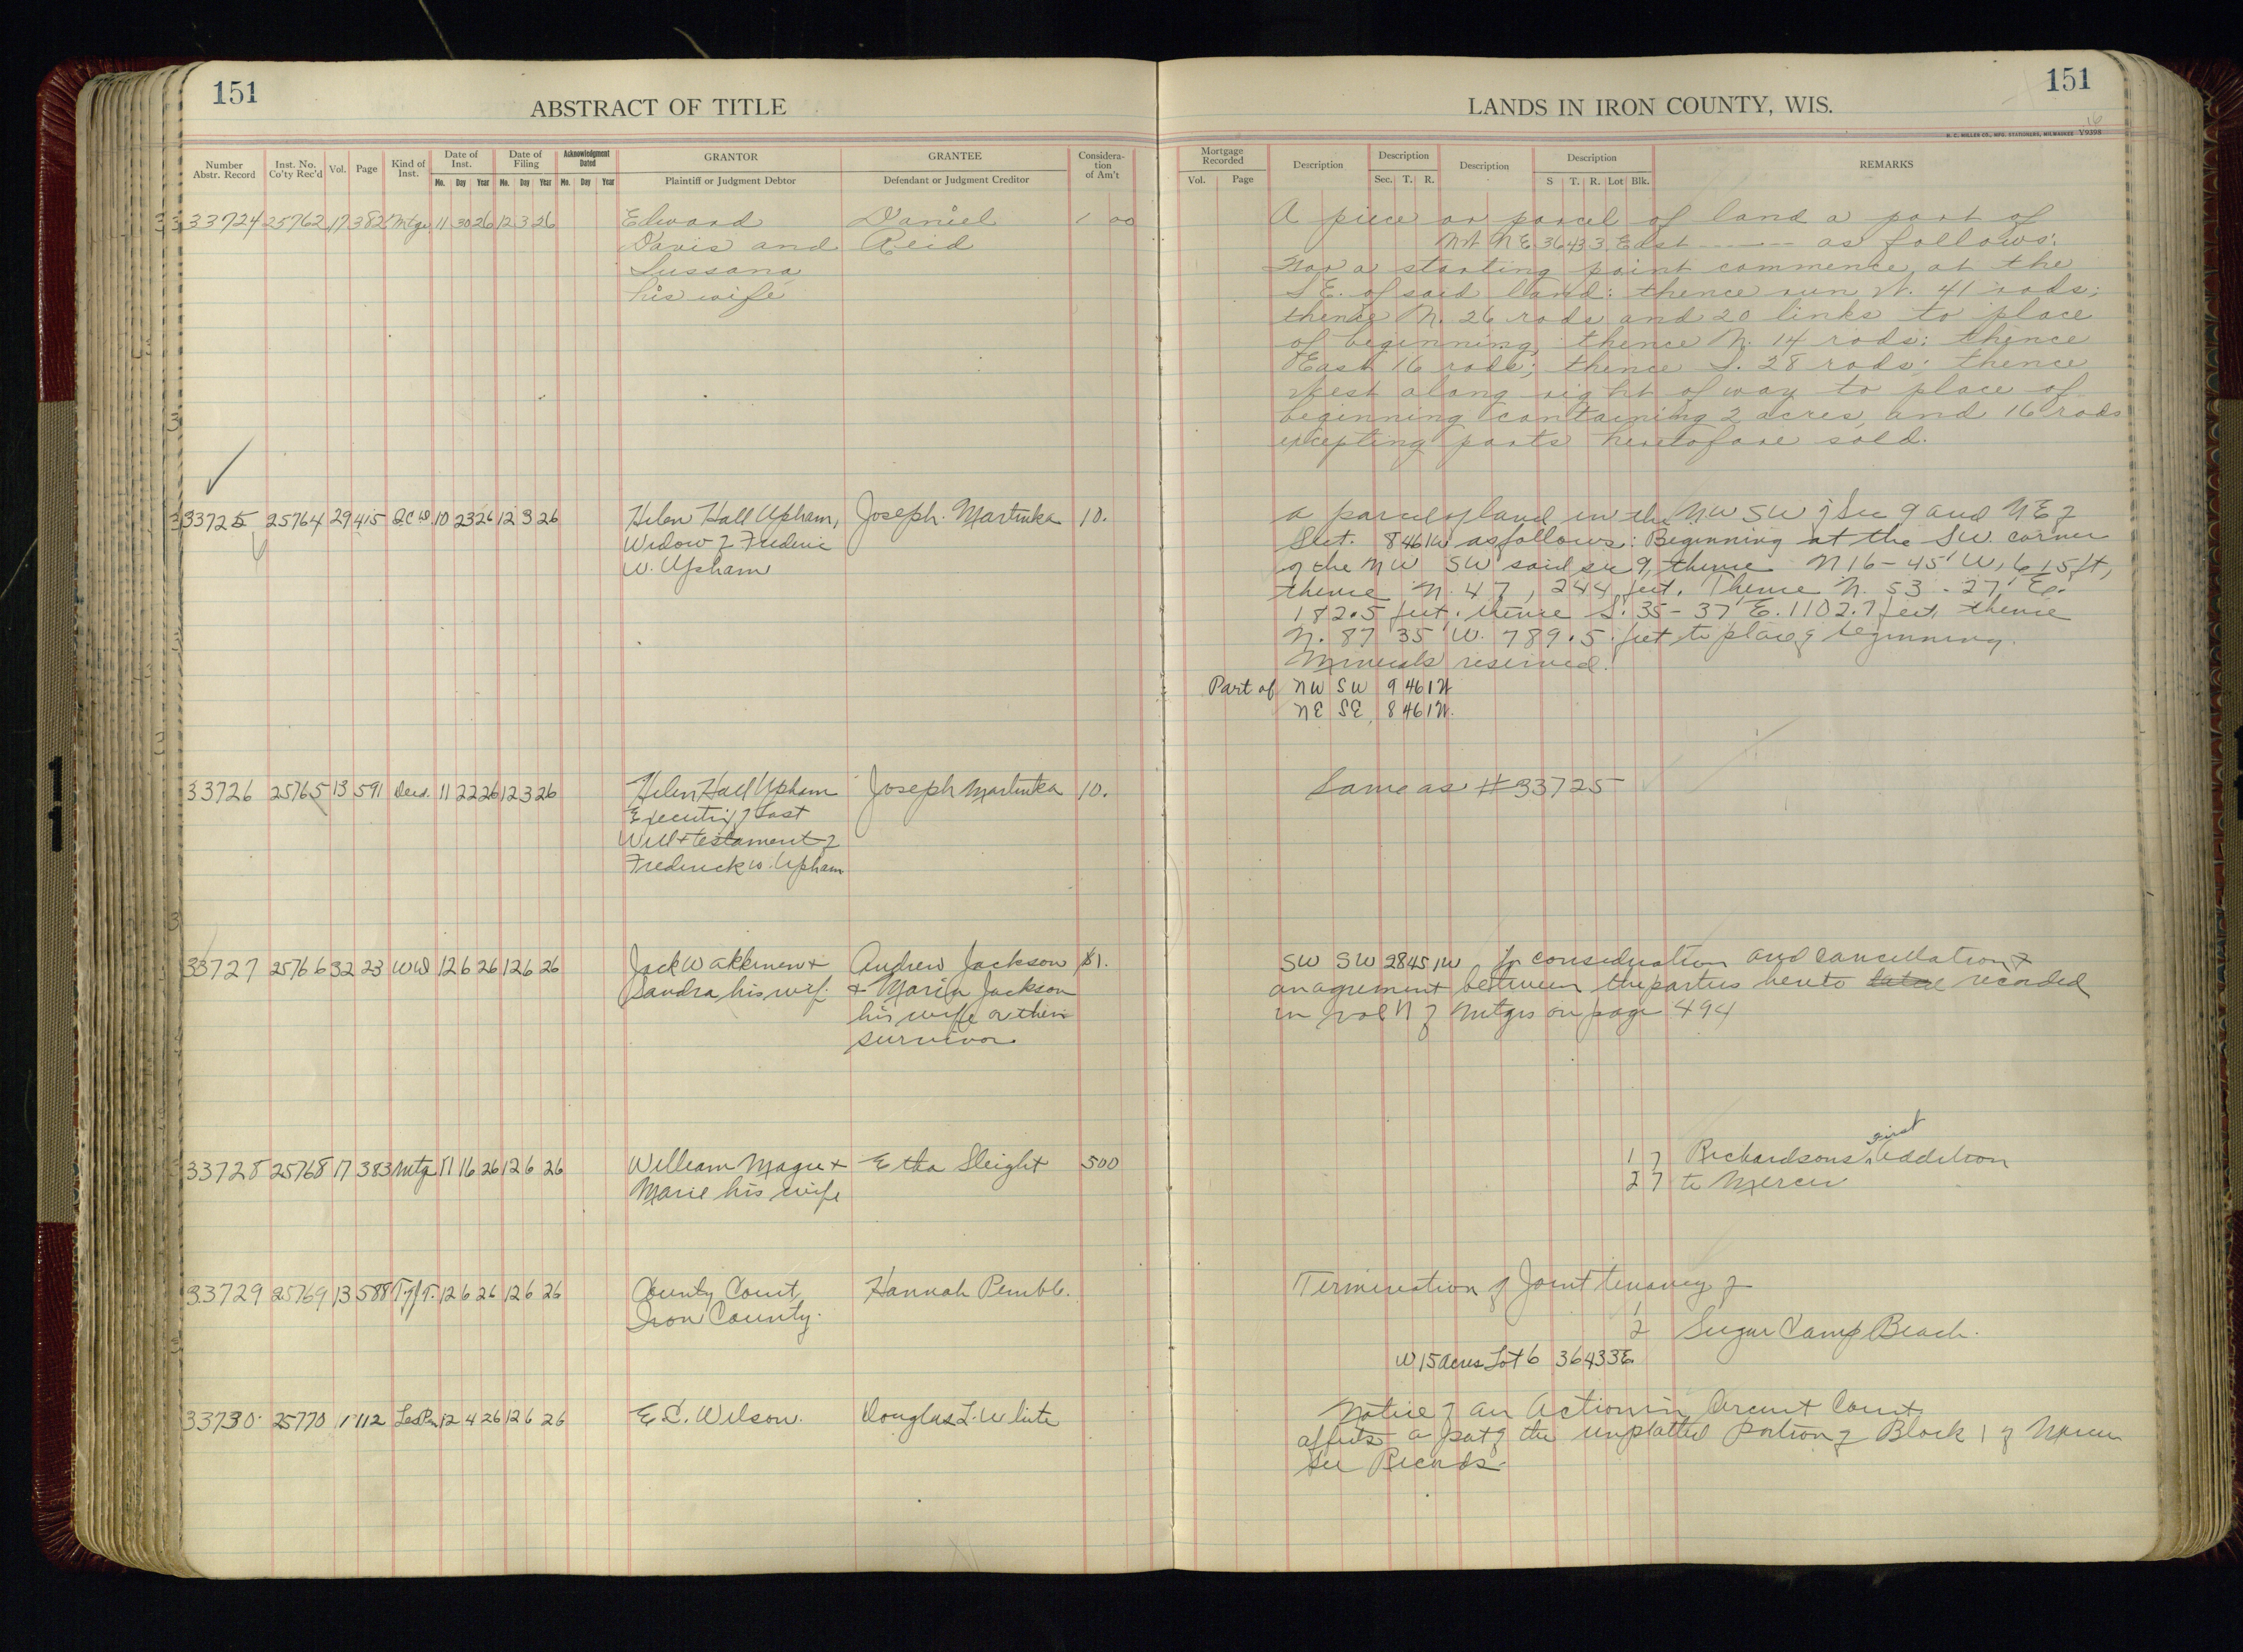 151
ABSTRACT OF TITLE
Number Abstr. Record Inst. No. Co'ty Rec'd Vol. Page Kind of Inst. Date of Inst. Date of Filing Acknowledgment Dated GRANTOR GRANTEE Consideration of Am't
Mo. Day Year Mo. Day Year Mo. Day Year Plaintiff or Judgment Debtor Defendant or Judgment Creditor
33724 25762 17 382 Mtge 11 30 26 12 3 26 Edward Daniel 1 00
Davis and Reid
Sussana
his wife
33725 25764 29 415 Q.C.D. 10 23 26 12 3 26 Helen Hall Upham, Joseph Martinka 10.
Widow of Frederic
W. Upham
33726 25765 13 591 Deed. 11 22 26 12 3 26 Helen Hall Upham Joseph Martinka 10.
Executrix of Last
Will + testament of
Frederick W. Upham
33727 25766 32 23 WD 12 6 26 12 6 26 Jack Wakkinen + Andrew Jackson $1.
Sandra his wife + Maria Jackson
his wife or their
survivor
33728 25768 17 383 Mtg 11 16 26 12 6 26 William Magee + Etha Sleight 500
Marie his wife
33729 25769 13 588 12 6 26 12 6 26 County Court, Hannah Pemble.
Iron County.
33730 25770 1 112 Les Pen 12 4 26 12 6 26 E.C. Wilson. Douglas L. White
151
LANDS IN IRON COUNTY, WIS.
16
H. C. MILLER CO., MFG. STATIONERS, MILWAUKEE V9398
Mortgage Recorded Description Description Description Description REMARKS
Vol. Page Sec. T. R. S T. R. Lot Blk.
A piece or parcel of land a part of
NW NE 36 43 3 East ------ as follows:
For a starting point commence at the
S E. of said land: thence run W. 41 rods;
thence N. 26 rods and 20 links to place
of beginning thence N. 14 rods; thence
East 16 rods; thence S. 28 rods; thence
West along right of way to place of
beginning containing 2 acres, and 16 rods
excepting parts heretofore sold.
a parcel of land in the NW SW of Sec 9 and NE of
8 46 1W as follows: Beginning at the SW. corner
of the NW SW said sec 9, thence N 16-45' W, 615 ft,
thence N. 47, 244 feet. Thence N. 53-27' E.
182.5 feet, thence S. 35-37' E. 1102.7 feet, thence
N. 87 35' W. 789.5 feet to place of beginning.
Minerals reserved.
Part of NW SW 9 46 1W
NE SE, 8 46 1W.
Same as #33725
SW SW 28 45 1W for consideration and cancellation of
an agreement between the parties hereto recorded
in Vol 17 of Mtges on page 494
1 7 Richardsons first Addition
2 7 to Mercer
Termination of Joint tenancy of
1
2 Sugar Camp Beach.
W 15 acres Lot 6 36 43 3E
Notice of an Action in Circuit Court
affects a part of the unplatted portion of Block 1 of Mercer
See Records.